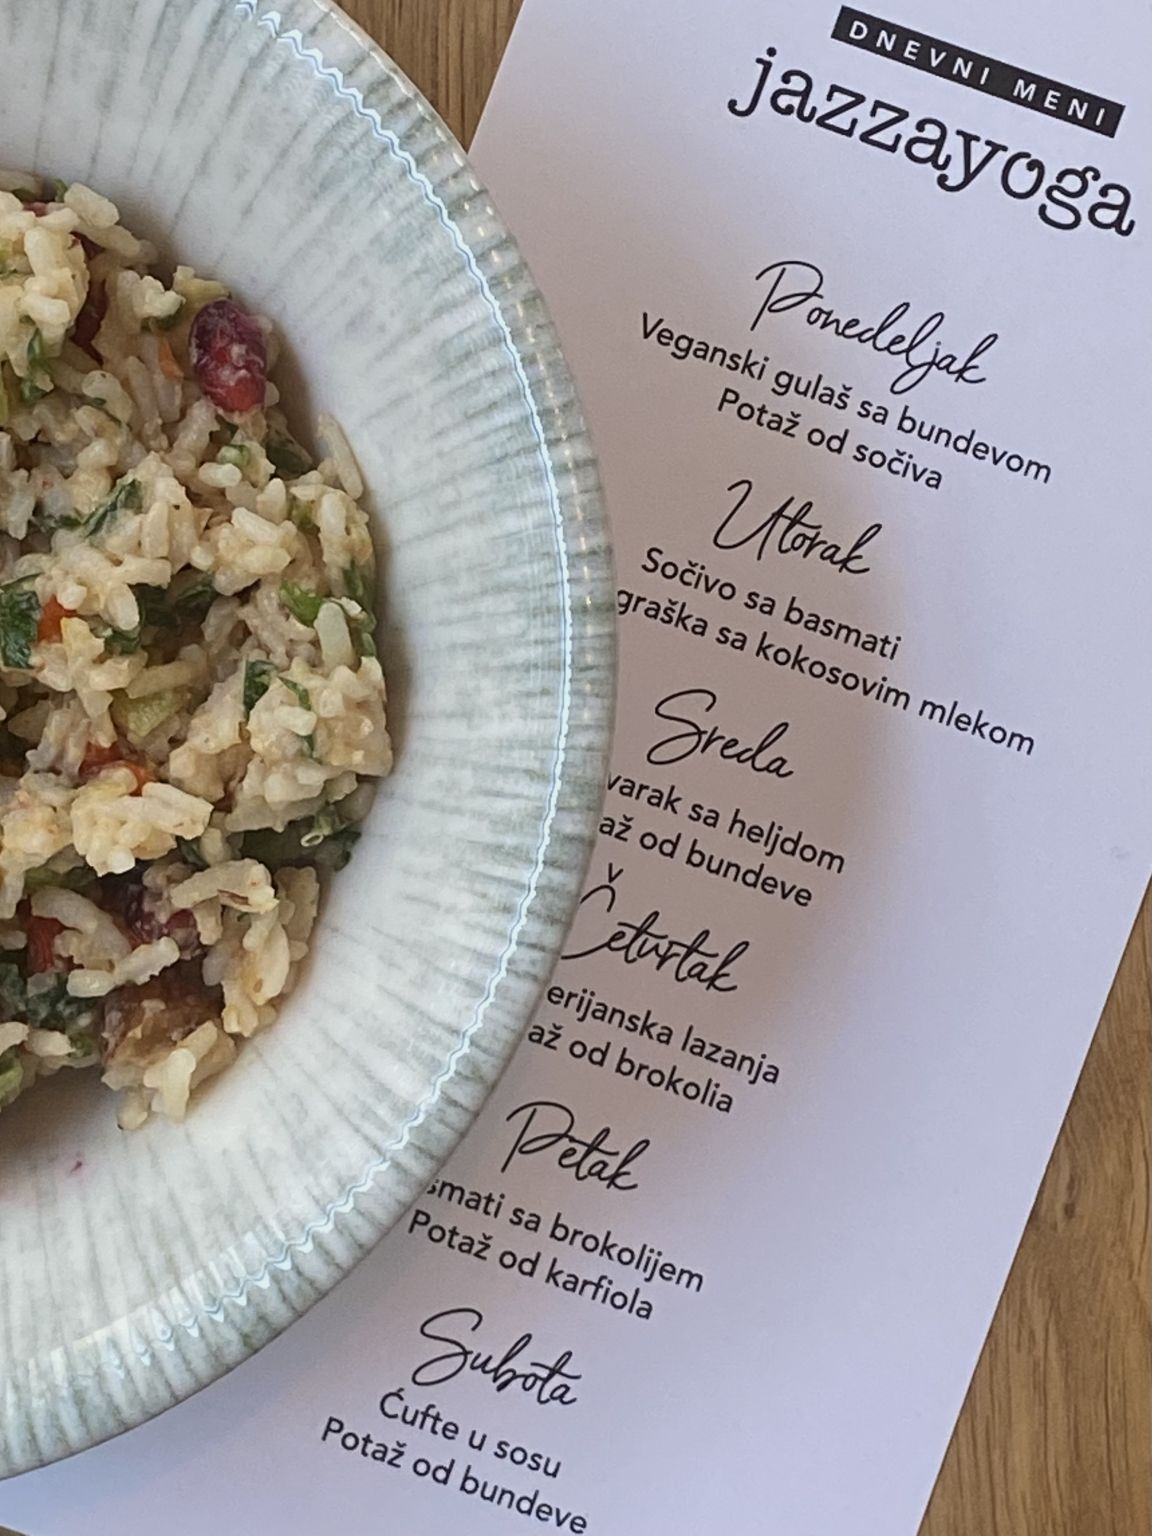 DNEVNI MENI
jazzayoga
Ponedeljak
Veganski gulaš sa bundevom
Potaž od sočiva
Utorak
Sočivo sa basmati
graška sa kokosovim mlekom
Sreda
varak sa heljdom
až od bundeve
Četvrtak
erijanska lazanja
až od brokolia
Petak
smati sa brokolijem
Potaž od karfiola
Subota
Ćufte u sosu
Potaž od bundeve